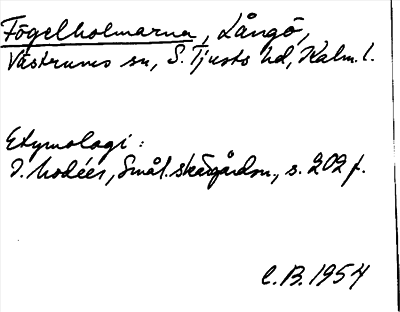 Fögelholmarna, Långö,
Västrums sn, S. Tjusts hd, Kalm. l.
Etymologi:
I. Modéer, Smål. skärgårdsn., s. 202 f.
C.B. 1954